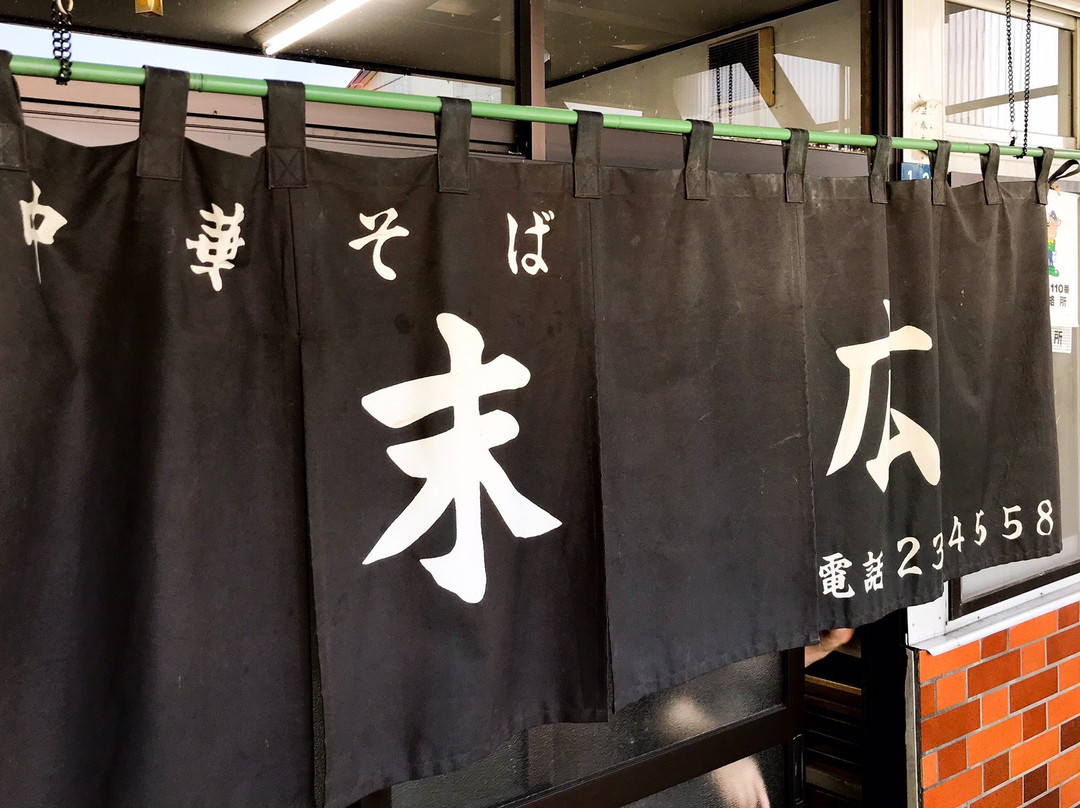 中華そば
末広
電話234558
110番
絡所
所